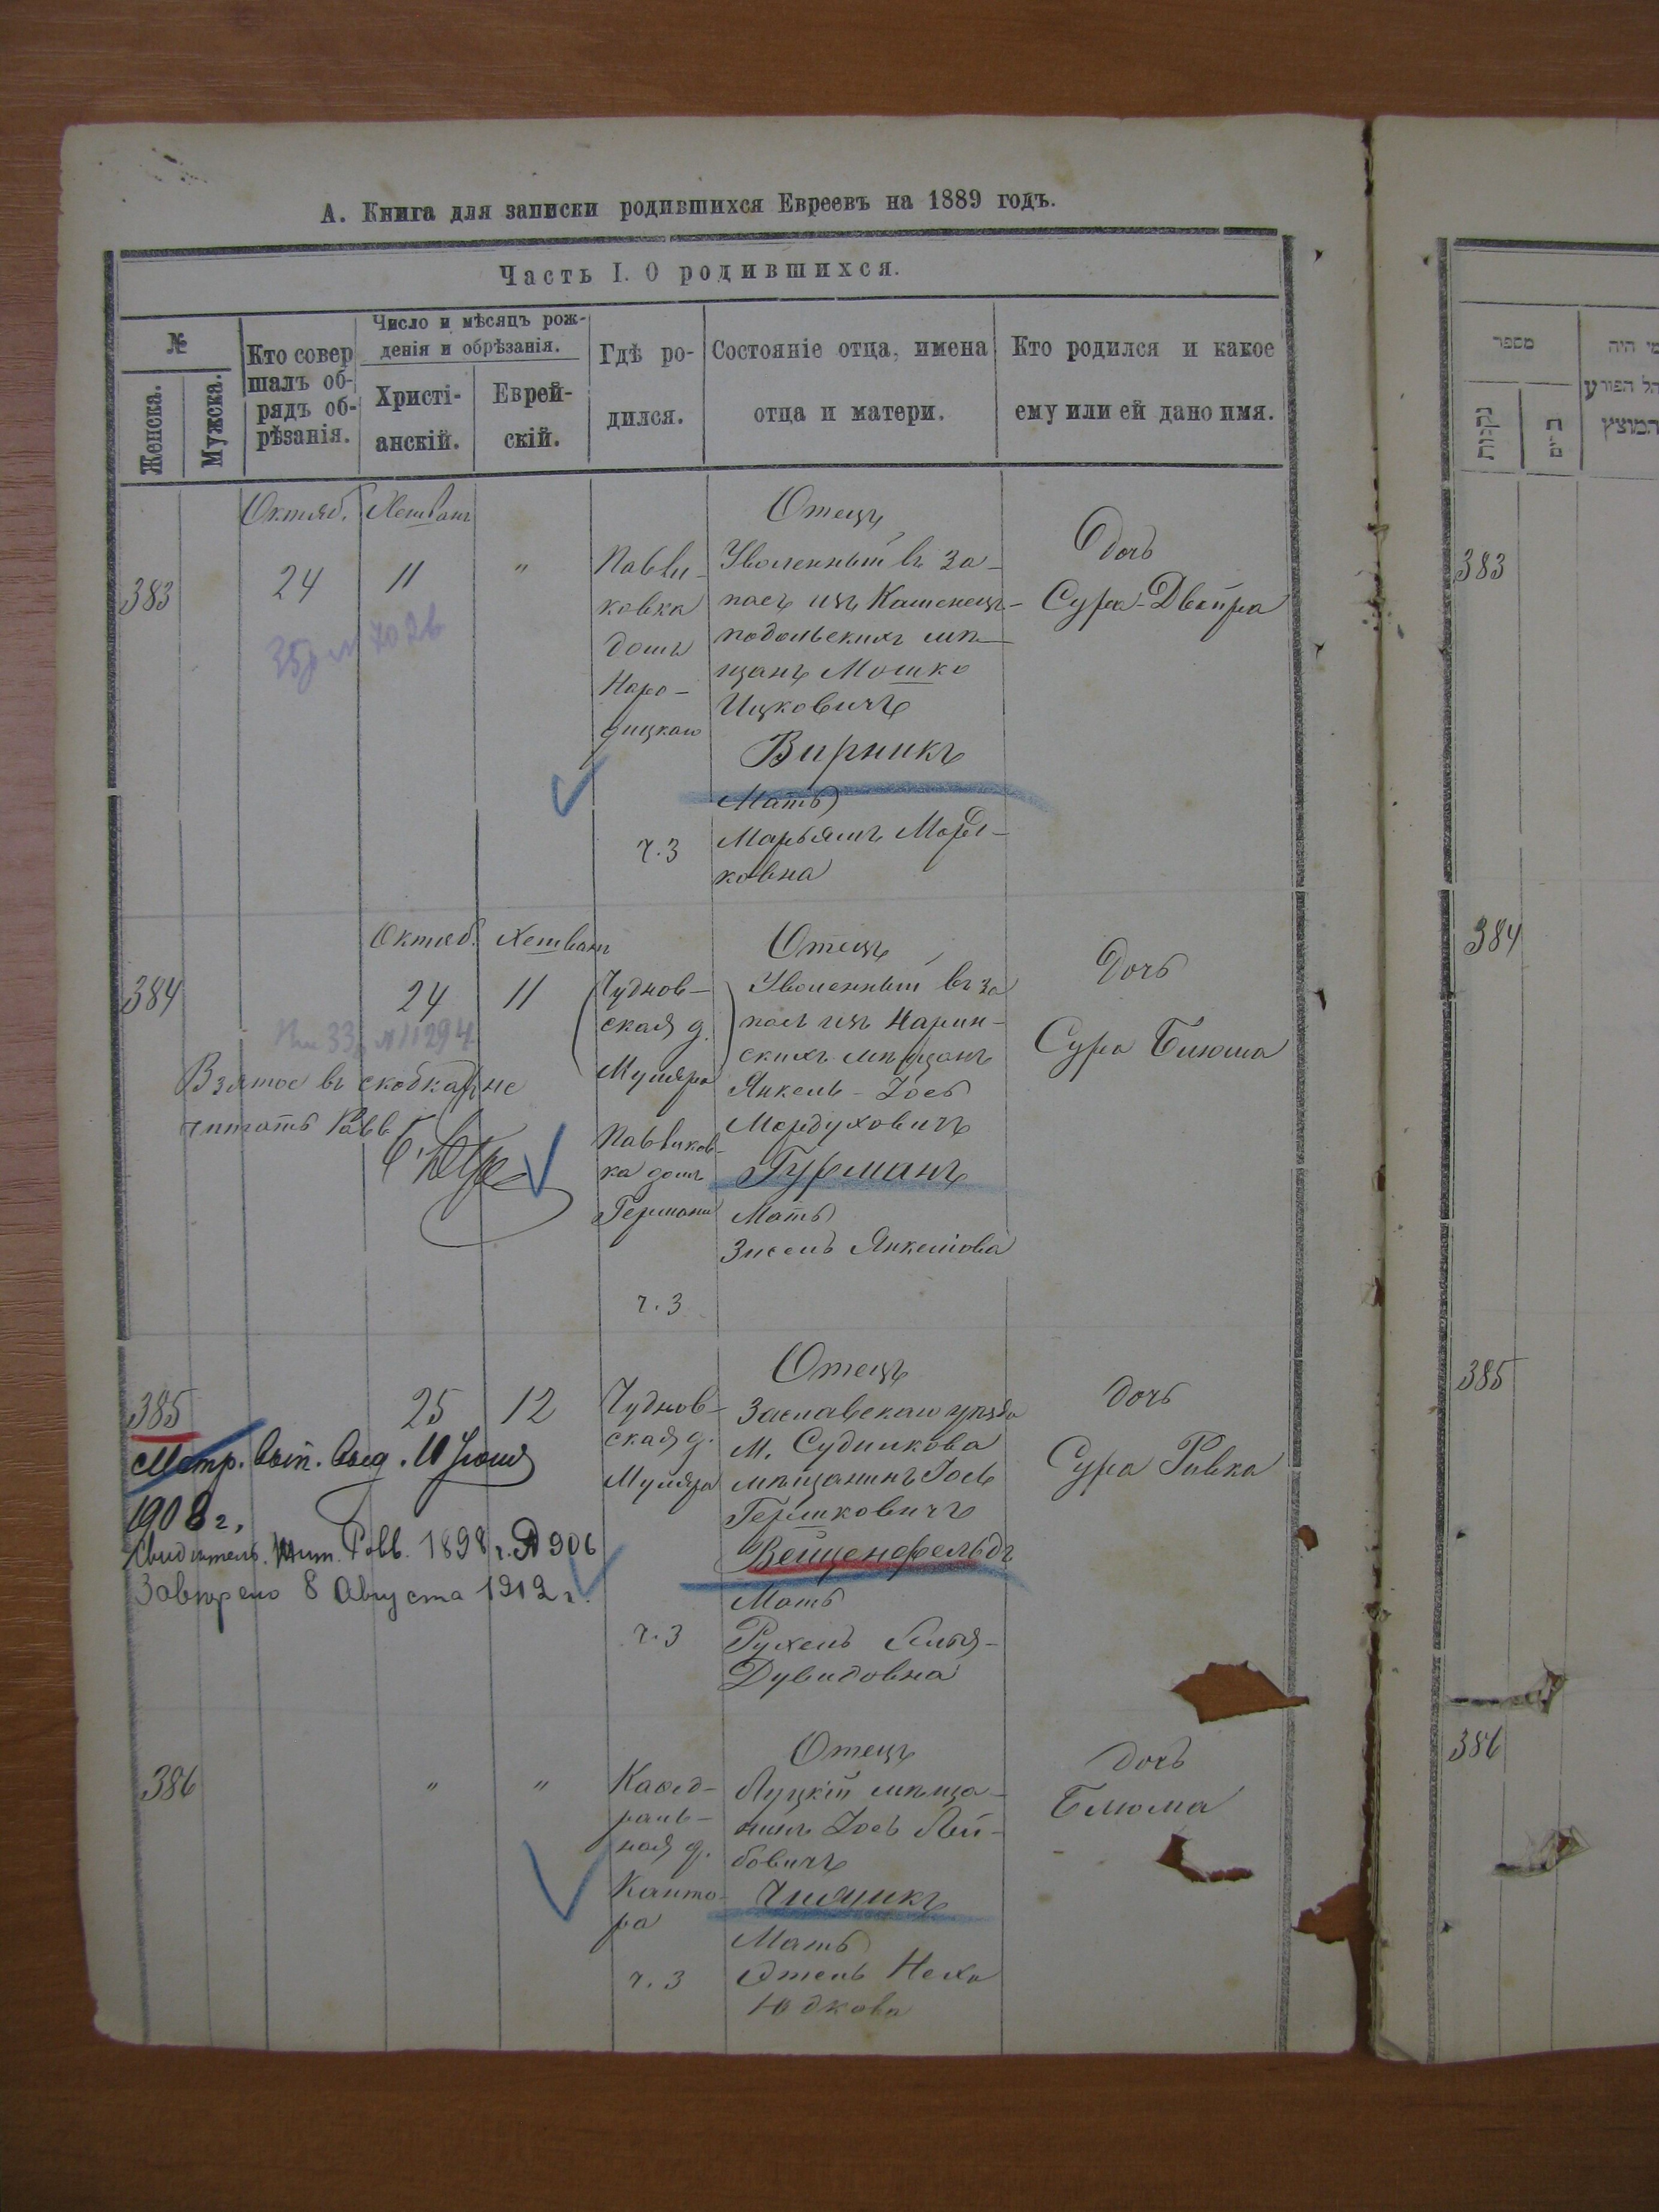 А. Книга для записки родившихся Евреевъ на 1889 годъ.
Часть I. О родившихся.
№
Женска.
Мужска.
Кто совер
шалъ об-
рядъ об-
рѣзанія.
Число и мѣсяцъ рож-
денія и обрѣзанія.
Христі-
анскій.
Еврей-
скій.
Гдѣ ро-
дился.
Состояніе отца, имена
отца и матери.
Кто родился и какое
ему или ей дано имя.
383
Октяб. Хешванъ
24 11 "
Павли-
ковка
домъ
Наро-
дицкаго
ч. 3
Отецъ
Уволенный въ за-
пасъ изъ Каменецъ-
подольскихъ мѣ-
щанъ Мошко
Ицковичъ
Вирникъ
Мать
МарьямъМорд-
ковна
Дочь
Сура-Двейра
384
Октяб. Хешванъ
24 11
Взятое въ скобкахъ не
читать Равв.
Чуднов-
ская д.
Муляра
Павликов-
ка домъ
Германа
ч. 3
Отецъ
Уволенный въ за
пасъ изъ Нарин-
скихъ мѣщанъ
Янкель-Іось
Мордуховичъ
Гурманъ
Мать
Зисель Янкелова
Дочь
Сура Блюма
385
25 12
Метр. вып. выд. 11 Іюля
1908 г.
Свидѣтель. Жит. Равв. 1898 г. № 906
Завѣрено 8 Августа 1912 г.
Чуднов-
ская д.
Муляра
ч. 3
Отецъ
Заславскаго уѣзда
м. Судилкова
мѣщанинъ Іось
Гершковичъ
Вейценфельдъ
Мать
Рухель
Дувидовна
дочь
Сура Ривка
386
" "
Каѳед-
раль-
ная д.
Канто-
ра
ч. 3
Отецъ
Луцкій мѣща-
нинъ Іось Лей-
бовичъ
Мать
Этель Неха
Юдкова
дочь
Блюма
מספר
נקבות
זכרים
מי היה
המוצץ
383
384
385
386